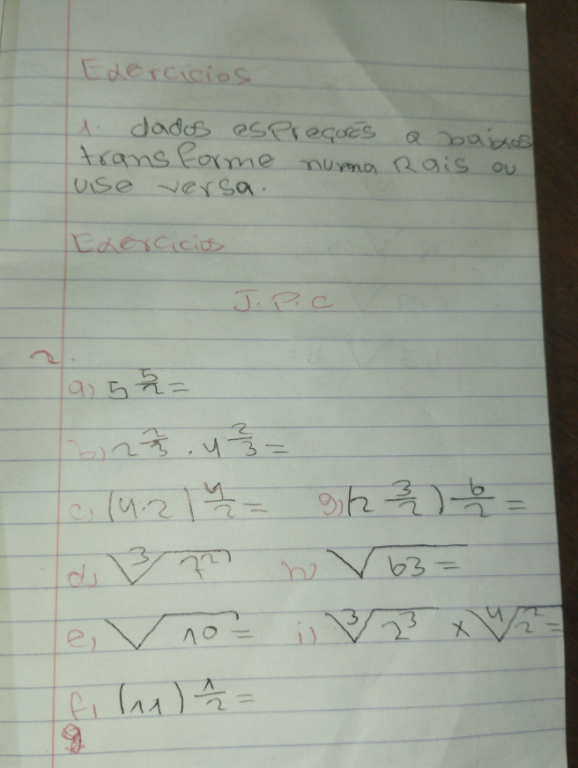 Exercícios
1. dados espreções a baixos
transforme numa Rais ou
vise versa.
Exercícios
T.P.C
2.
a) 5^(5/2) =
b) 2^(2/3) . 4^(2/3) =
c) (4.2)^(4/2) = g) (2^(3/2))^(6/2) =
d) ∛(7²) h) √63 =
e) √10 = i) ∛(2³) × ∜(2²) =
f) (11)^(1/2) =